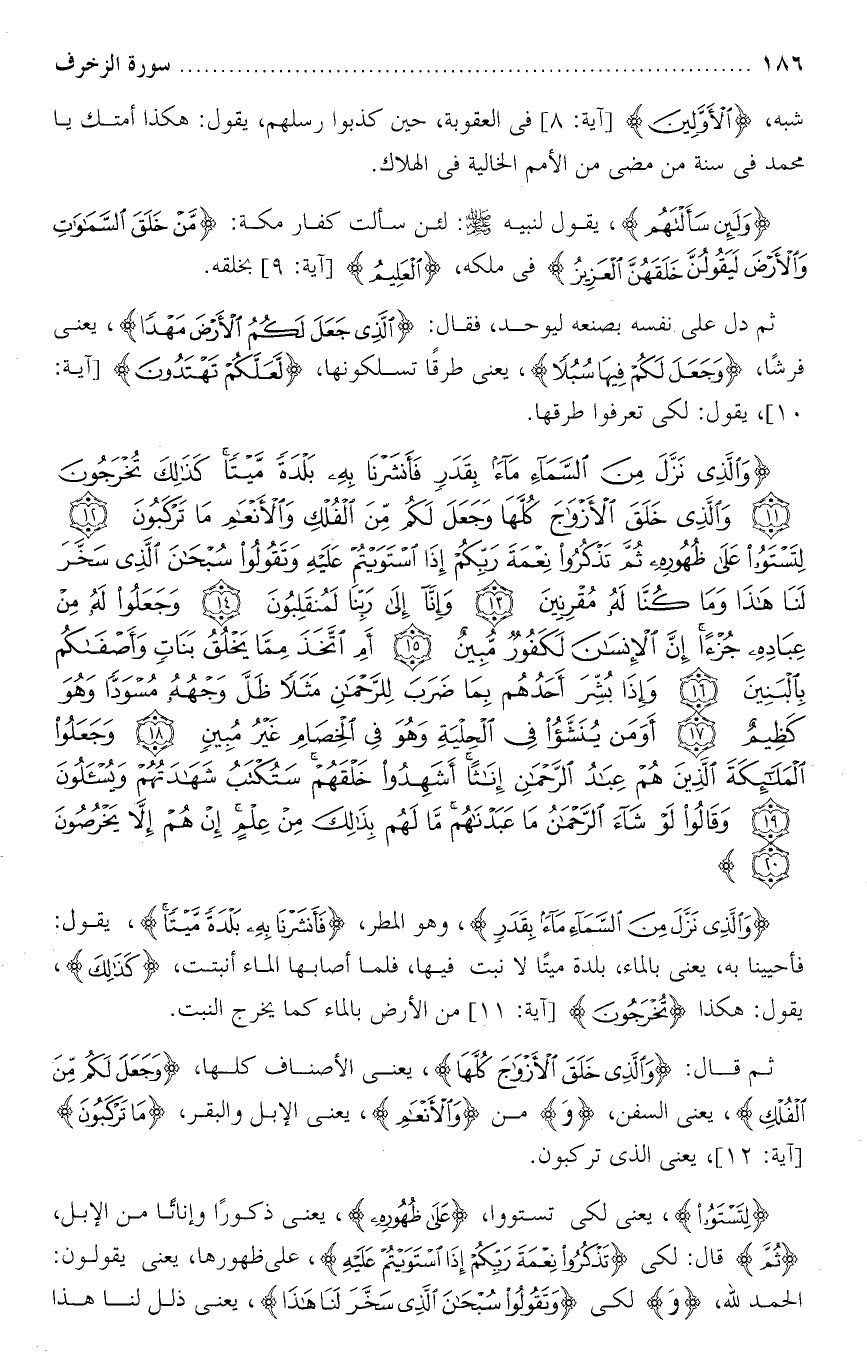 ١٨٦ ........................................................................ سورة الزخرف
شبه، ﴿ٱلْأَوَّلِينَ﴾ [آية: ٨] فى العقوبة، حين كذبوا رسلهم، يقول: هكذا أمتـك يـا
محمد فى سنة من مضى من الأمم الخالية فى الهلاك.
﴿وَلَئِن سَأَلْتَهُم﴾، يقـول لنبيـه ﷺ: لئـن سـألت كفـار مكـة: ﴿مَّنْ خَلَقَ ٱلسَّمَٰوَٰتِ
وَٱلْأَرْضَ لَيَقُولُنَّ خَلَقَهُنَّ ٱلْعَزِيزُ﴾ فى ملكه، ﴿ٱلْعَلِيمُ﴾ [آية: ٩] بخلقه.
ثم دل على نفسه بصنعه ليوحـد، فقـال: ﴿ٱلَّذِى جَعَلَ لَكُمُ ٱلْأَرْضَ مَهْدًا﴾، يعنـى
فرشًا، ﴿وَجَعَلَ لَكُمْ فِيهَا سُبُلًا﴾، يعنى طرقًا تسـلكونها، ﴿لَّعَلَّكُمْ تَهْتَدُونَ﴾ [آيـة:
١٠]، يقول: لكى تعرفوا طرقها.
﴿وَٱلَّذِى نَزَّلَ مِنَ ٱلسَّمَآءِ مَآءًۢ بِقَدَرٍ فَأَنشَرْنَا بِهِۦ بَلْدَةً مَّيْتًا ۚ كَذَٰلِكَ تُخْرَجُونَ
﴿١١﴾ وَٱلَّذِى خَلَقَ ٱلْأَزْوَٰجَ كُلَّهَا وَجَعَلَ لَكُم مِّنَ ٱلْفُلْكِ وَٱلْأَنْعَٰمِ مَا تَرْكَبُونَ ﴿١٢﴾
لِتَسْتَوُۥا۟ عَلَىٰ ظُهُورِهِۦ ثُمَّ تَذْكُرُوا۟ نِعْمَةَ رَبِّكُمْ إِذَا ٱسْتَوَيْتُمْ عَلَيْهِ وَتَقُولُوا۟ سُبْحَٰنَ ٱلَّذِى سَخَّرَ
لَنَا هَٰذَا وَمَا كُنَّا لَهُۥ مُقْرِنِينَ ﴿١٣﴾ وَإِنَّآ إِلَىٰ رَبِّنَا لَمُنقَلِبُونَ ﴿١٤﴾ وَجَعَلُوا۟ لَهُۥ مِنْ
عِبَادِهِۦ جُزْءًا ۚ إِنَّ ٱلْإِنسَٰنَ لَكَفُورٌ مُّبِينٌ ﴿١٥﴾ أَمِ ٱتَّخَذَ مِمَّا يَخْلُقُ بَنَاتٍ وَأَصْفَىٰكُم
بِٱلْبَنِينَ ﴿١٦﴾ وَإِذَا بُشِّرَ أَحَدُهُم بِمَا ضَرَبَ لِلرَّحْمَٰنِ مَثَلًا ظَلَّ وَجْهُهُۥ مُسْوَدًّا وَهُوَ
كَظِيمٌ ﴿١٧﴾ أَوَمَن يُنَشَّؤُا۟ فِى ٱلْحِلْيَةِ وَهُوَ فِى ٱلْخِصَامِ غَيْرُ مُبِينٍ ﴿١٨﴾ وَجَعَلُوا۟
ٱلْمَلَٰٓئِكَةَ ٱلَّذِينَ هُمْ عِبَٰدُ ٱلرَّحْمَٰنِ إِنَٰثًا ۚ أَشَهِدُوا۟ خَلْقَهُمْ ۚ سَتُكْتَبُ شَهَٰدَتُهُمْ وَيُسْـَٔلُونَ
﴿١٩﴾ وَقَالُوا۟ لَوْ شَآءَ ٱلرَّحْمَٰنُ مَا عَبَدْنَٰهُم ۗ مَّا لَهُم بِذَٰلِكَ مِنْ عِلْمٍ ۖ إِنْ هُمْ إِلَّا يَخْرُصُونَ
﴿٢٠﴾ ﴾
﴿وَٱلَّذِى نَزَّلَ مِنَ ٱلسَّمَآءِ مَآءًۢ بِقَدَرٍ﴾، وهو المطر، ﴿فَأَنشَرْنَا بِهِۦ بَلْدَةً مَّيْتًا ۚ﴾، يقـول:
فأحيينا به، يعنى بالماء، بلدة ميتًا لا نبت فيـها، فلمـا أصابـها المـاء أنبتـت، ﴿كَذَٰلِكَ﴾،
يقول: هكذا ﴿تُخْرَجُونَ﴾ [آية: ١١] من الأرض بالماء كما يخرج النبت.
ثـم قـال: ﴿وَٱلَّذِى خَلَقَ ٱلْأَزْوَٰجَ كُلَّهَا﴾، يعنـى الأصنـاف كلـها، ﴿وَجَعَلَ لَكُم مِّنَ
ٱلْفُلْكِ﴾، يعنى السفن، ﴿وَ﴾ مـن ﴿وَٱلْأَنْعَٰمِ﴾، يعنـى الإبـل والبقـر، ﴿مَا تَرْكَبُونَ﴾
[آية: ١٢]، يعنى الذى تركبون.
﴿لِتَسْتَوُۥا۟﴾، يعنى لكى تستووا، ﴿عَلَىٰ ظُهُورِهِۦ﴾، يعنـى ذكـورًا وإناثًـا مـن الإبـل،
﴿ثُمَّ﴾ قال: لكى ﴿تَذْكُرُوا۟ نِعْمَةَ رَبِّكُمْ إِذَا ٱسْتَوَيْتُمْ عَلَيْهِ﴾، على ظهورها، يعنى يقولـون:
الحمد لله، ﴿وَ﴾ لكـى ﴿وَتَقُولُوا۟ سُبْحَٰنَ ٱلَّذِى سَخَّرَ لَنَا هَٰذَا﴾، يعنـى ذلـل لنـا هـذا